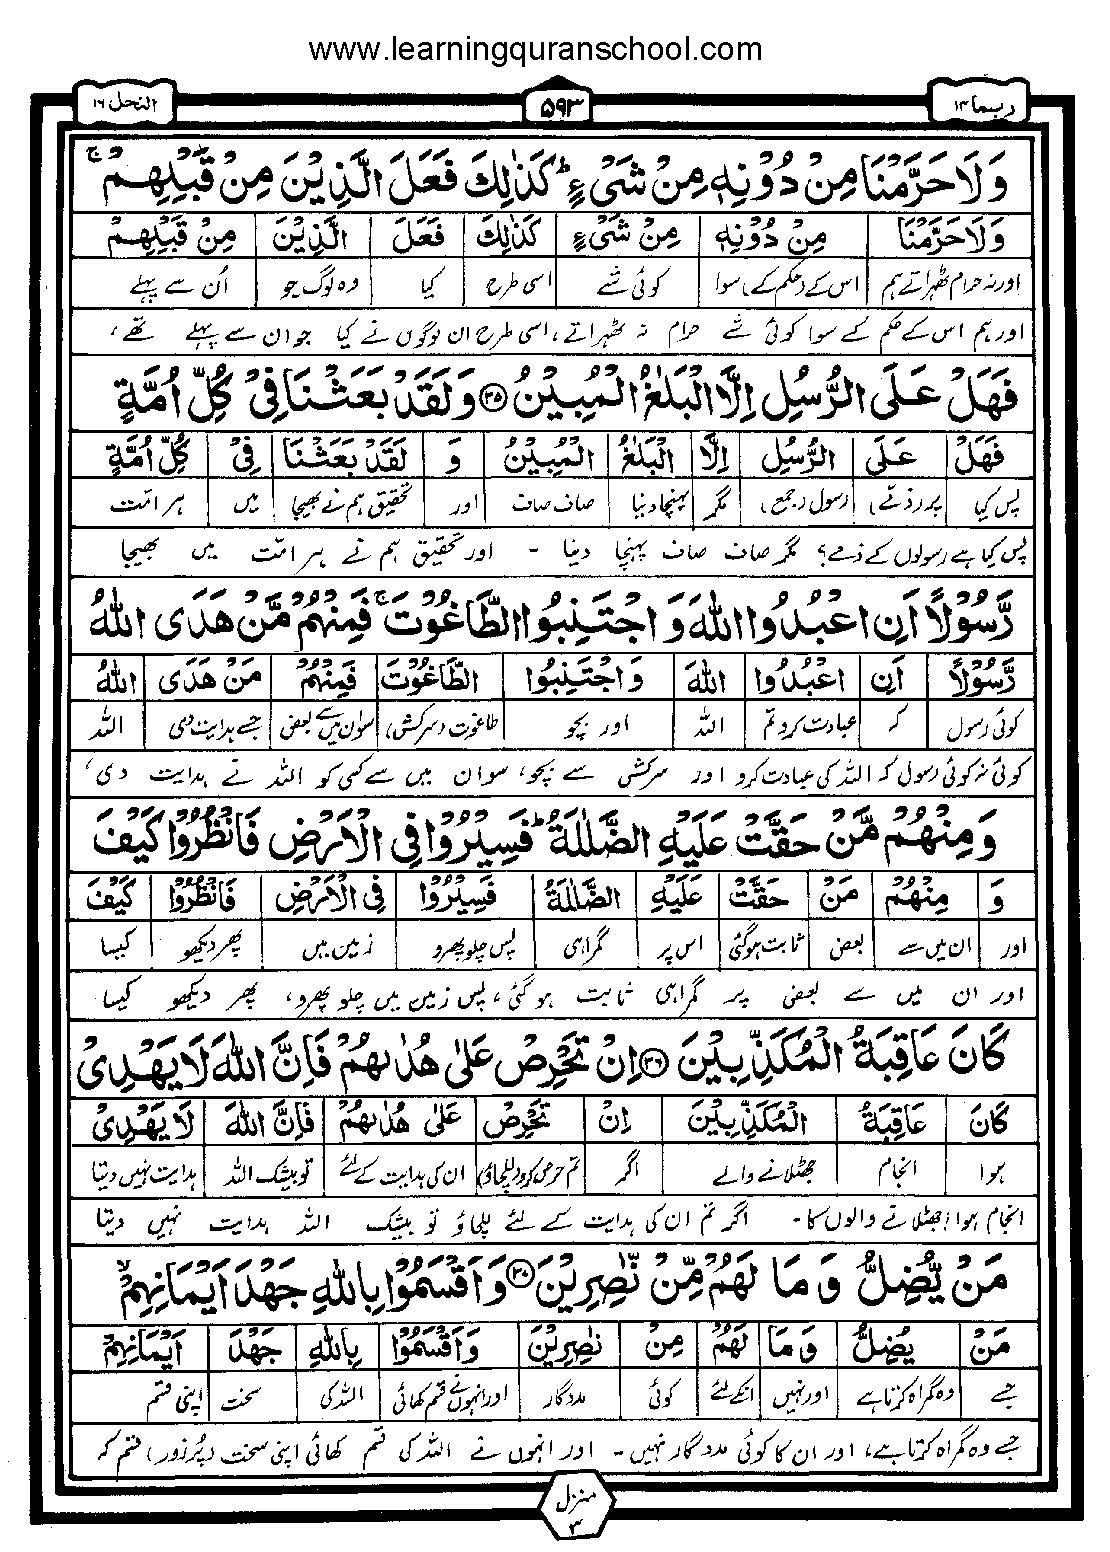 www.learningquranschool.com
ربما ۱۴
۵۹۳
النحل ۱۶
وَلَا حَرَّمْنَا مِنْ دُوْنِهٖ مِنْ شَیْءٍ ؕ كَذٰلِكَ فَعَلَ الَّذِیْنَ مِنْ قَبْلِهِمْ ۚ
وَلَا حَرَّمْنَا مِنْ دُوْنِهٖ مِنْ شَیْءٍ كَذٰلِكَ فَعَلَ الَّذِیْنَ مِنْ قَبْلِهِمْ
اور نہ حرام ٹھہراتے ہم اس کے (حکم کے) سوا کوئی شے اسی طرح کیا وہ لوگ جو اُن سے پہلے
اور ہم اس کے حکم کے سوا کوئی شے حرام نہ ٹھہراتے، اسی طرح ان لوگوں نے کیا جو ان سے پہلے تھے،
فَهَلْ عَلَی الرُّسُلِ اِلَّا الْبَلٰغُ الْمُبِیْنُ ۳۵ وَلَقَدْ بَعَثْنَا فِیْ كُلِّ اُمَّةٍ
فَهَلْ عَلَی الرُّسُلِ اِلَّا الْبَلٰغُ الْمُبِیْنُ وَ لَقَدْ بَعَثْنَا فِیْ كُلِّ اُمَّةٍ
پس کیا پر (ذمے) رسول (جمع) مگر پہنچا دینا صاف صاف اور تحقیق ہم نے بھیجا میں ہر امت
پس کیا ہے رسولوں کے ذمے؟ مگر صاف صاف پہنچا دینا - اور تحقیق ہم نے ہر امت میں بھیجا
رَّسُوْلًا اَنِ اعْبُدُوا اللّٰهَ وَ اجْتَنِبُوا الطَّاغُوْتَ ۚ فَمِنْهُمْ مَّنْ هَدَی اللّٰهُ
رَّسُوْلًا اَنِ اعْبُدُوا اللّٰهَ وَ اجْتَنِبُوا الطَّاغُوْتَ فَمِنْهُمْ مَنْ هَدَی اللّٰهُ
کوئی رسول کہ عبادت کرو تم اللہ اور بچو طاغوت (سرکش) سو ان میں سے بعض جسے ہدایت دی اللہ
کوئی نہ کوئی رسول کہ اللہ کی عبادت کرو اور سرکش سے بچو، سو ان میں سے کسی کو اللہ نے ہدایت دی،
وَ مِنْهُمْ مَّنْ حَقَّتْ عَلَیْهِ الضَّلٰلَةُ ؕ فَسِیْرُوْا فِی الْاَرْضِ فَانْظُرُوْا كَیْفَ
وَ مِنْهُمْ مَنْ حَقَّتْ عَلَیْهِ الضَّلٰلَةُ فَسِیْرُوْا فِی الْاَرْضِ فَانْظُرُوْا كَیْفَ
اور ان میں سے بعض ثابت ہوگئی اس پر گمراہی پس چلو پھرو زمین میں پھر دیکھو کیسا
اور ان میں سے بعض پر گمراہی ثابت ہوگئی، پس زمین میں چلو پھرو، پھر دیکھو کیسا
كَانَ عَاقِبَةُ الْمُكَذِّبِیْنَ ۳۶ اِنْ تَحْرِصْ عَلٰی هُدٰىهُمْ فَاِنَّ اللّٰهَ لَا یَهْدِیْ
كَانَ عَاقِبَةُ الْمُكَذِّبِیْنَ اِنْ تَحْرِصْ عَلٰی هُدٰىهُمْ فَاِنَّ اللّٰهَ لَا یَهْدِیْ
ہوا انجام جھٹلانے والے اگر تم حرص کرو (للچاؤ) ان کی ہدایت کے لئے تو بیشک اللہ ہدایت نہیں دیتا
انجام ہوا جھٹلانے والوں کا۔ اگر تم ان کی ہدایت کے لئے للچاؤ تو بیشک اللہ ہدایت نہیں دیتا
مَنْ یُّضِلُّ وَ مَا لَهُمْ مِّنْ نّٰصِرِیْنَ ۳۷ وَ اَقْسَمُوْا بِاللّٰهِ جَهْدَ اَیْمَانِهِمْ ۙ
مَنْ یُضِلُّ وَ مَا لَهُمْ مِنْ نّٰصِرِیْنَ وَ اَقْسَمُوْا بِاللّٰهِ جَهْدَ اَیْمَانِهِمْ
جسے وہ گمراہ کرتا ہے اور نہیں انکے لئے کوئی مددگار اور انہوں نے قسم کھائی اللہ کی سخت اپنی قسم
جسے وہ گمراہ کرتا ہے، اور ان کا کوئی مددگار نہیں - اور انہوں نے اللہ کی قسم کھائی اپنی سخت (پُر زور) قسم کہ
منزل ۳